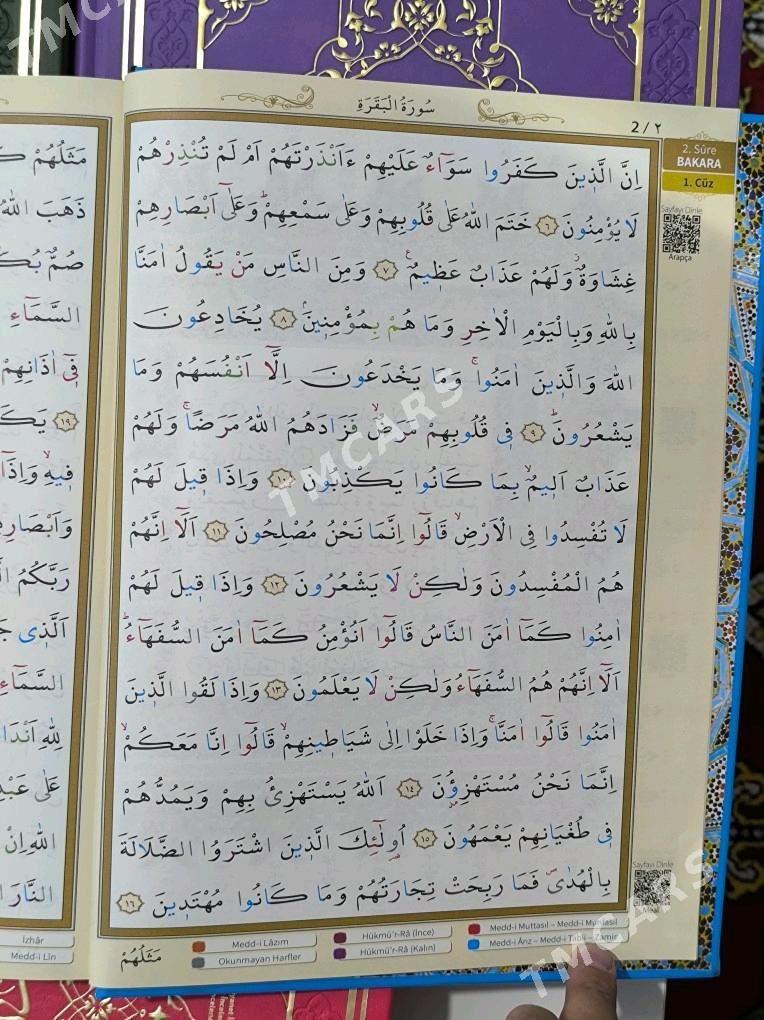 سُورَةُ الْبَقَرَةِ
2 / ٢
2. Sûre
BAKARA
1. Cüz
Sayfayı Dinle
Arapça
اِنَّ الَّذ۪ينَ كَفَرُوا سَوَٓاءٌ عَلَيْهِمْ ءَاَنْذَرْتَهُمْ اَمْ لَمْ تُنْذِرْهُمْ
لَا يُؤْمِنُونَ ﴿٦﴾ خَتَمَ اللّٰهُ عَلٰى قُلُوبِهِمْ وَعَلٰى سَمْعِهِمْۜ وَعَلٰٓى اَبْصَارِهِمْ
غِشَاوَةٌۘ وَلَهُمْ عَذَابٌ عَظ۪يمٌ۟ ﴿٧﴾ وَمِنَ النَّاسِ مَنْ يَقُولُ اٰمَنَّا
بِاللّٰهِ وَبِالْيَوْمِ الْاٰخِرِ وَمَا هُمْ بِمُؤْمِن۪ينَۢ ﴿٨﴾ يُخَادِعُونَ
اللّٰهَ وَالَّذ۪ينَ اٰمَنُواۚ وَمَا يَخْدَعُونَ اِلَّٓا اَنْفُسَهُمْ وَمَا
يَشْعُرُونَۜ ﴿٩﴾ ف۪ي قُلُوبِهِمْ مَرَضٌۙ فَزَادَهُمُ اللّٰهُ مَرَضًاۚ وَلَهُمْ
عَذَابٌ اَل۪يمٌۙ بِمَا كَانُوا يَكْذِبُونَ ﴿١٠﴾ وَاِذَا ق۪يلَ لَهُمْ
لَا تُفْسِدُوا فِي الْاَرْضِۙ قَالُٓوا اِنَّمَا نَحْنُ مُصْلِحُونَ ﴿١١﴾ اَلَٓا اِنَّهُمْ
هُمُ الْمُفْسِدُونَ وَلٰكِنْ لَا يَشْعُرُونَ ﴿١٢﴾ وَاِذَا ق۪يلَ لَهُمْ
اٰمِنُوا كَمَٓا اٰمَنَ النَّاسُ قَالُٓوا اَنُؤْمِنُ كَمَٓا اٰمَنَ السُّفَهَٓاءُۜ
اَلَٓا اِنَّهُمْ هُمُ السُّفَهَٓاءُ وَلٰكِنْ لَا يَعْلَمُونَ ﴿١٣﴾ وَاِذَا لَقُوا الَّذ۪ينَ
اٰمَنُوا قَالُٓوا اٰمَنَّاۚ وَاِذَا خَلَوْا اِلٰى شَيَاط۪ينِهِمْۙ قَالُٓوا اِنَّا مَعَكُمْۙ
اِنَّمَا نَحْنُ مُسْتَهْزِؤُ۫نَ ﴿١٤﴾ اَللّٰهُ يَسْتَهْزِئُ بِهِمْ وَيَمُدُّهُمْ
ف۪ي طُغْيَانِهِمْ يَعْمَهُونَ ﴿١٥﴾ اُو۬لٰٓئِكَ الَّذ۪ينَ اشْتَرَوُا الضَّلَالَةَ
بِالْهُدٰىۖ فَمَا رَبِحَتْ تِجَارَتُهُمْ وَمَا كَانُوا مُهْتَد۪ينَ ﴿١٦﴾
مَثَلُهُمْ
Sayfayı Dinle
Meal
Medd-i Lâzım
Hükmü'r-Râ (İnce)
Medd-i Muttasıl – Medd-i Munfasıl
Okunmayan Harfler
Hükmü'r-Râ (Kalın)
Medd-i Ârız – Medd-i Tabîi – Zamir
مَثَلُهُمْ
ذَهَبَ اللّٰهُ
صُمٌّ
السَّمَٓاءِ
ف۪ٓي اٰذَانِهِمْ
﴿١٩﴾
ف۪يهِۙ وَاِذَٓا
رَبَّكُمُ
اَلَّذ۪ي
السَّمَٓاءِ
لِلّٰهِ
عَلٰى
اللّٰهِ اِنْ
النَّارَ
İzhâr
Medd-i Lîn
TMCARS
TMCARS
TMCARS
TMCARS
TMCARS